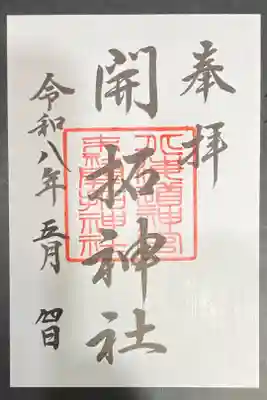 奉拝
開拓神社
北海道神宮
末社開拓神社
令和八年 五月 四日